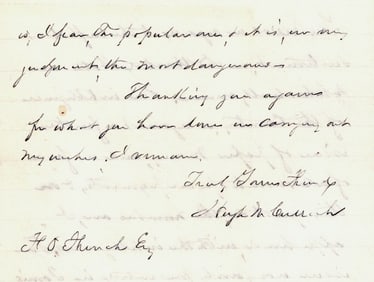 is, I fear, the popular one, & it is, in my
judgment, the most dangerous.
Thanking you again
for what you have done in carrying out
my wishes, I remain,
Truly Yours
Hugh McCulloch
Esq